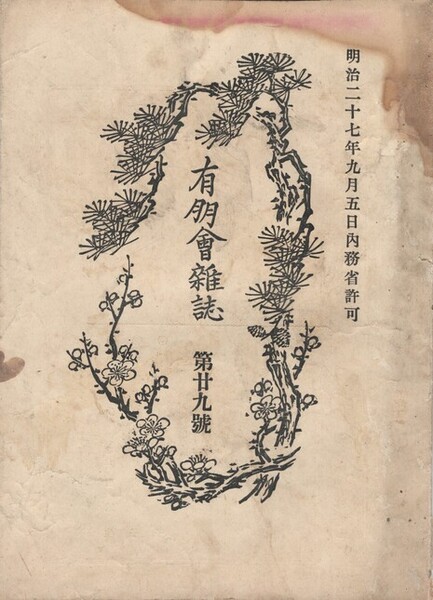 明治二十七年九月五日內務省許可
有朋會雜誌 第廿九號